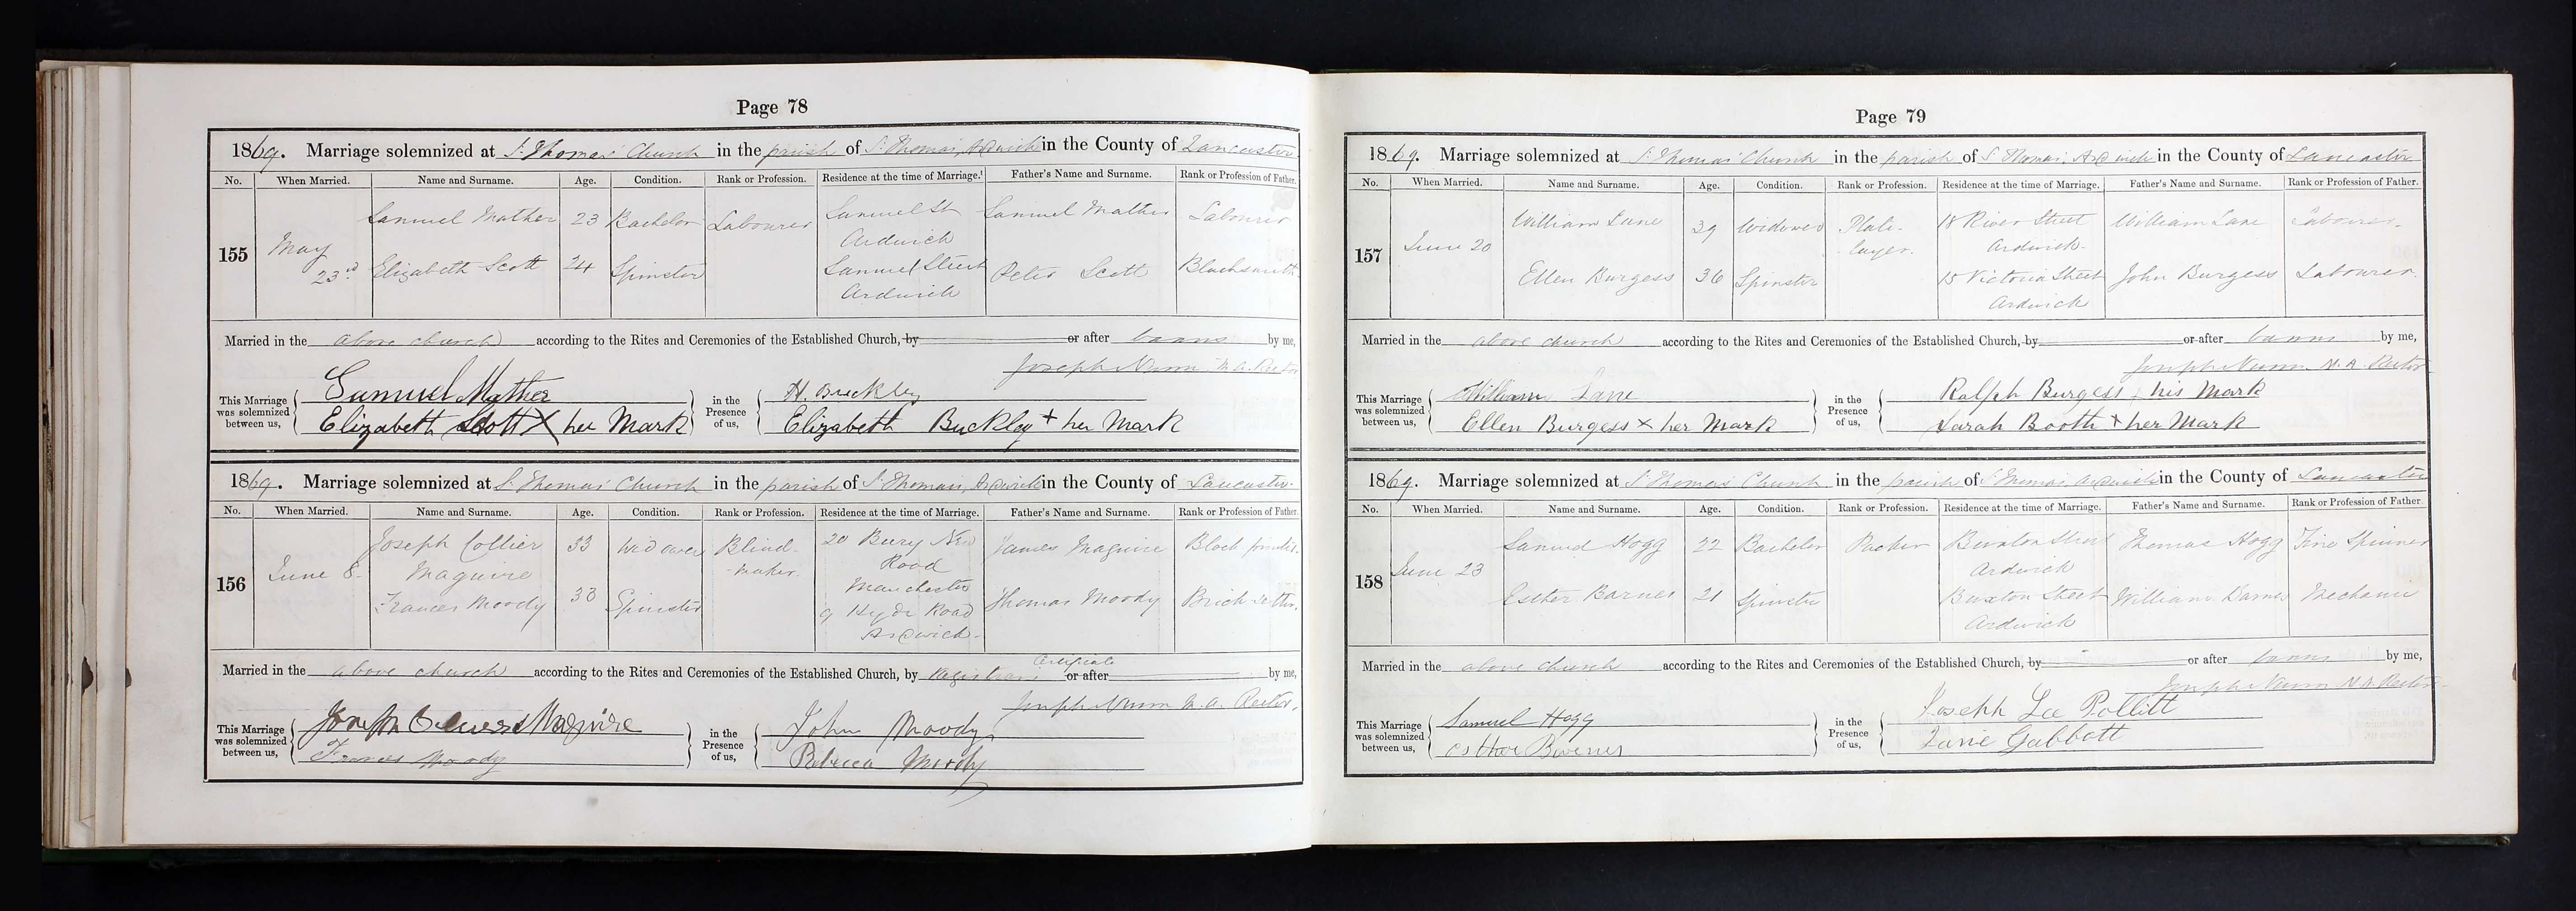 Page 78
1869. Marriage solemnized at St. Thomas' Church in the parish of St. Thomas, Ardwick in the County of Lancaster
No. When Married. Name and Surname. Age. Condition. Rank or Profession. Residence at the time of Marriage. Father's Name and Surname. Rank or Profession of Father.
155 May 23rd Samuel Mather 23 Bachelor Labourer Samuel St Ardwick Samuel Mather Labourer
Elizabeth Scott 24 Spinster Samuel Street Ardwick Peter Scott Blacksmith
Married in the above church according to the Rites and Ceremonies of the Established Church, by or after banns by me,
Joseph Nunn M.A. Rector
This Marriage was solemnized between us, Samuel Mather in the Presence of us, H. Buckley
Elizabeth Scott X her Mark Elizabeth Buckley + her Mark
1869. Marriage solemnized at St. Thomas' Church in the parish of St. Thomas, Ardwick in the County of Lancaster.
No. When Married. Name and Surname. Age. Condition. Rank or Profession. Residence at the time of Marriage. Father's Name and Surname. Rank or Profession of Father.
156 June 8. Joseph Collier Maguire 33 Widower Blind-maker. 20 Bury New Road Manchester James Maguire Block printer.
Frances Moody 33 Spinster 9 Hyde Road Ardwick. Thomas Moody Brick-setter.
Married in the above church according to the Rites and Ceremonies of the Established Church, by registrar's certificate or after by me,
Joseph Nunn M.A. Rector.
This Marriage was solemnized between us, Joseph Maguire in the Presence of us, John Moody
Frances Moody Rebecca Moody
Page 79
1869. Marriage solemnized at St. Thomas' Church in the parish of St. Thomas, Ardwick in the County of Lancaster
No. When Married. Name and Surname. Age. Condition. Rank or Profession. Residence at the time of Marriage. Father's Name and Surname. Rank or Profession of Father.
157 June 20 William Lane 39 Widower Plate-layer. 18 River Street Ardwick. William Lane Labourer.
Ellen Burgess 36 Spinster 15 Victoria Street Ardwick John Burgess Labourer.
Married in the above church according to the Rites and Ceremonies of the Established Church, by or after banns by me,
Joseph Nunn M.A. Rector
This Marriage was solemnized between us, William Lane in the Presence of us, Ralph Burgess + his Mark
Ellen Burgess X her Mark Sarah Booth + her Mark
1869. Marriage solemnized at St. Thomas' Church in the parish of St. Thomas, Ardwick in the County of Lancaster
No. When Married. Name and Surname. Age. Condition. Rank or Profession. Residence at the time of Marriage. Father's Name and Surname. Rank or Profession of Father.
158 June 23 Samuel Hogg 22 Bachelor Packer Buxton Street Ardwick Thomas Hogg Fine Spinner
Esther Barnes 21 Spinster Buxton Street Ardwick William Barnes Mechanic
Married in the above church according to the Rites and Ceremonies of the Established Church, by or after banns by me,
Joseph Nunn M.A. Rector.
This Marriage was solemnized between us, Samuel Hogg in the Presence of us, Joseph Lee Pollitt
Jane Gabbott